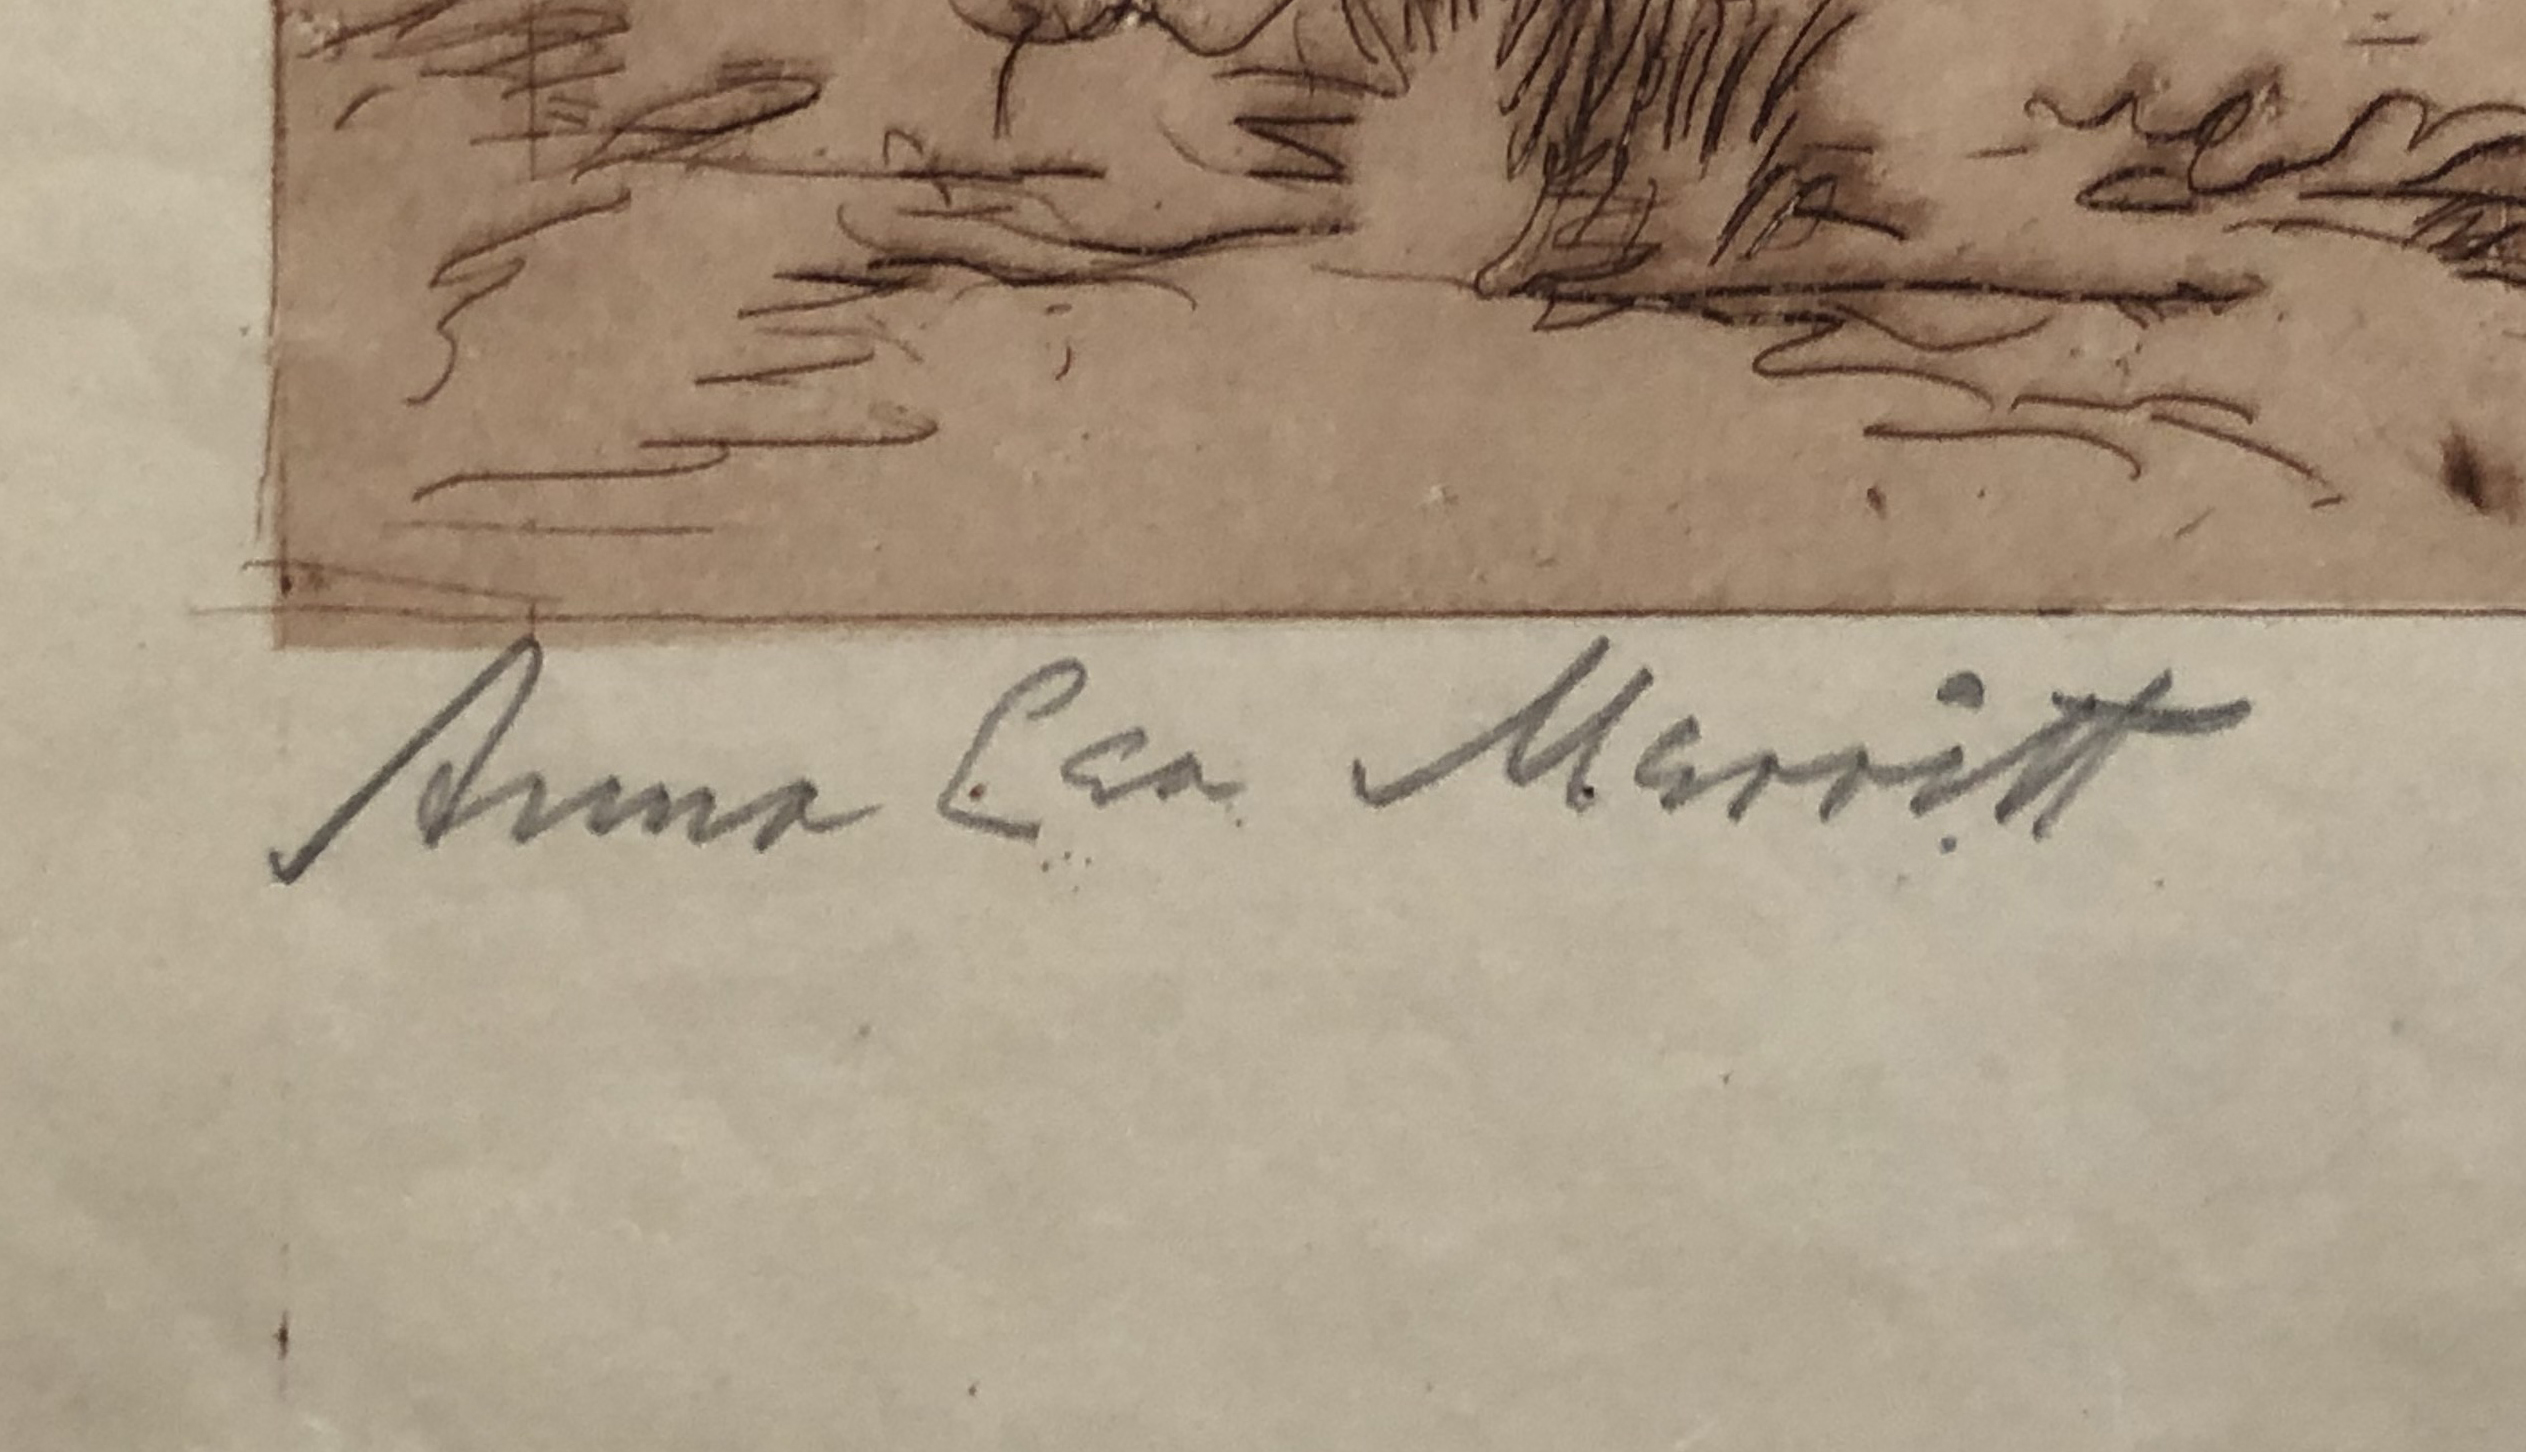 Anna Lea Merritt